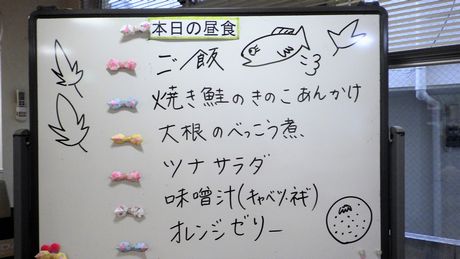 本日の昼食
ご飯
焼き鮭のきのこあんかけ
大根のべっこう煮
ツナサラダ
味噌汁(キャベツ・ネギ)
オレンジゼリー